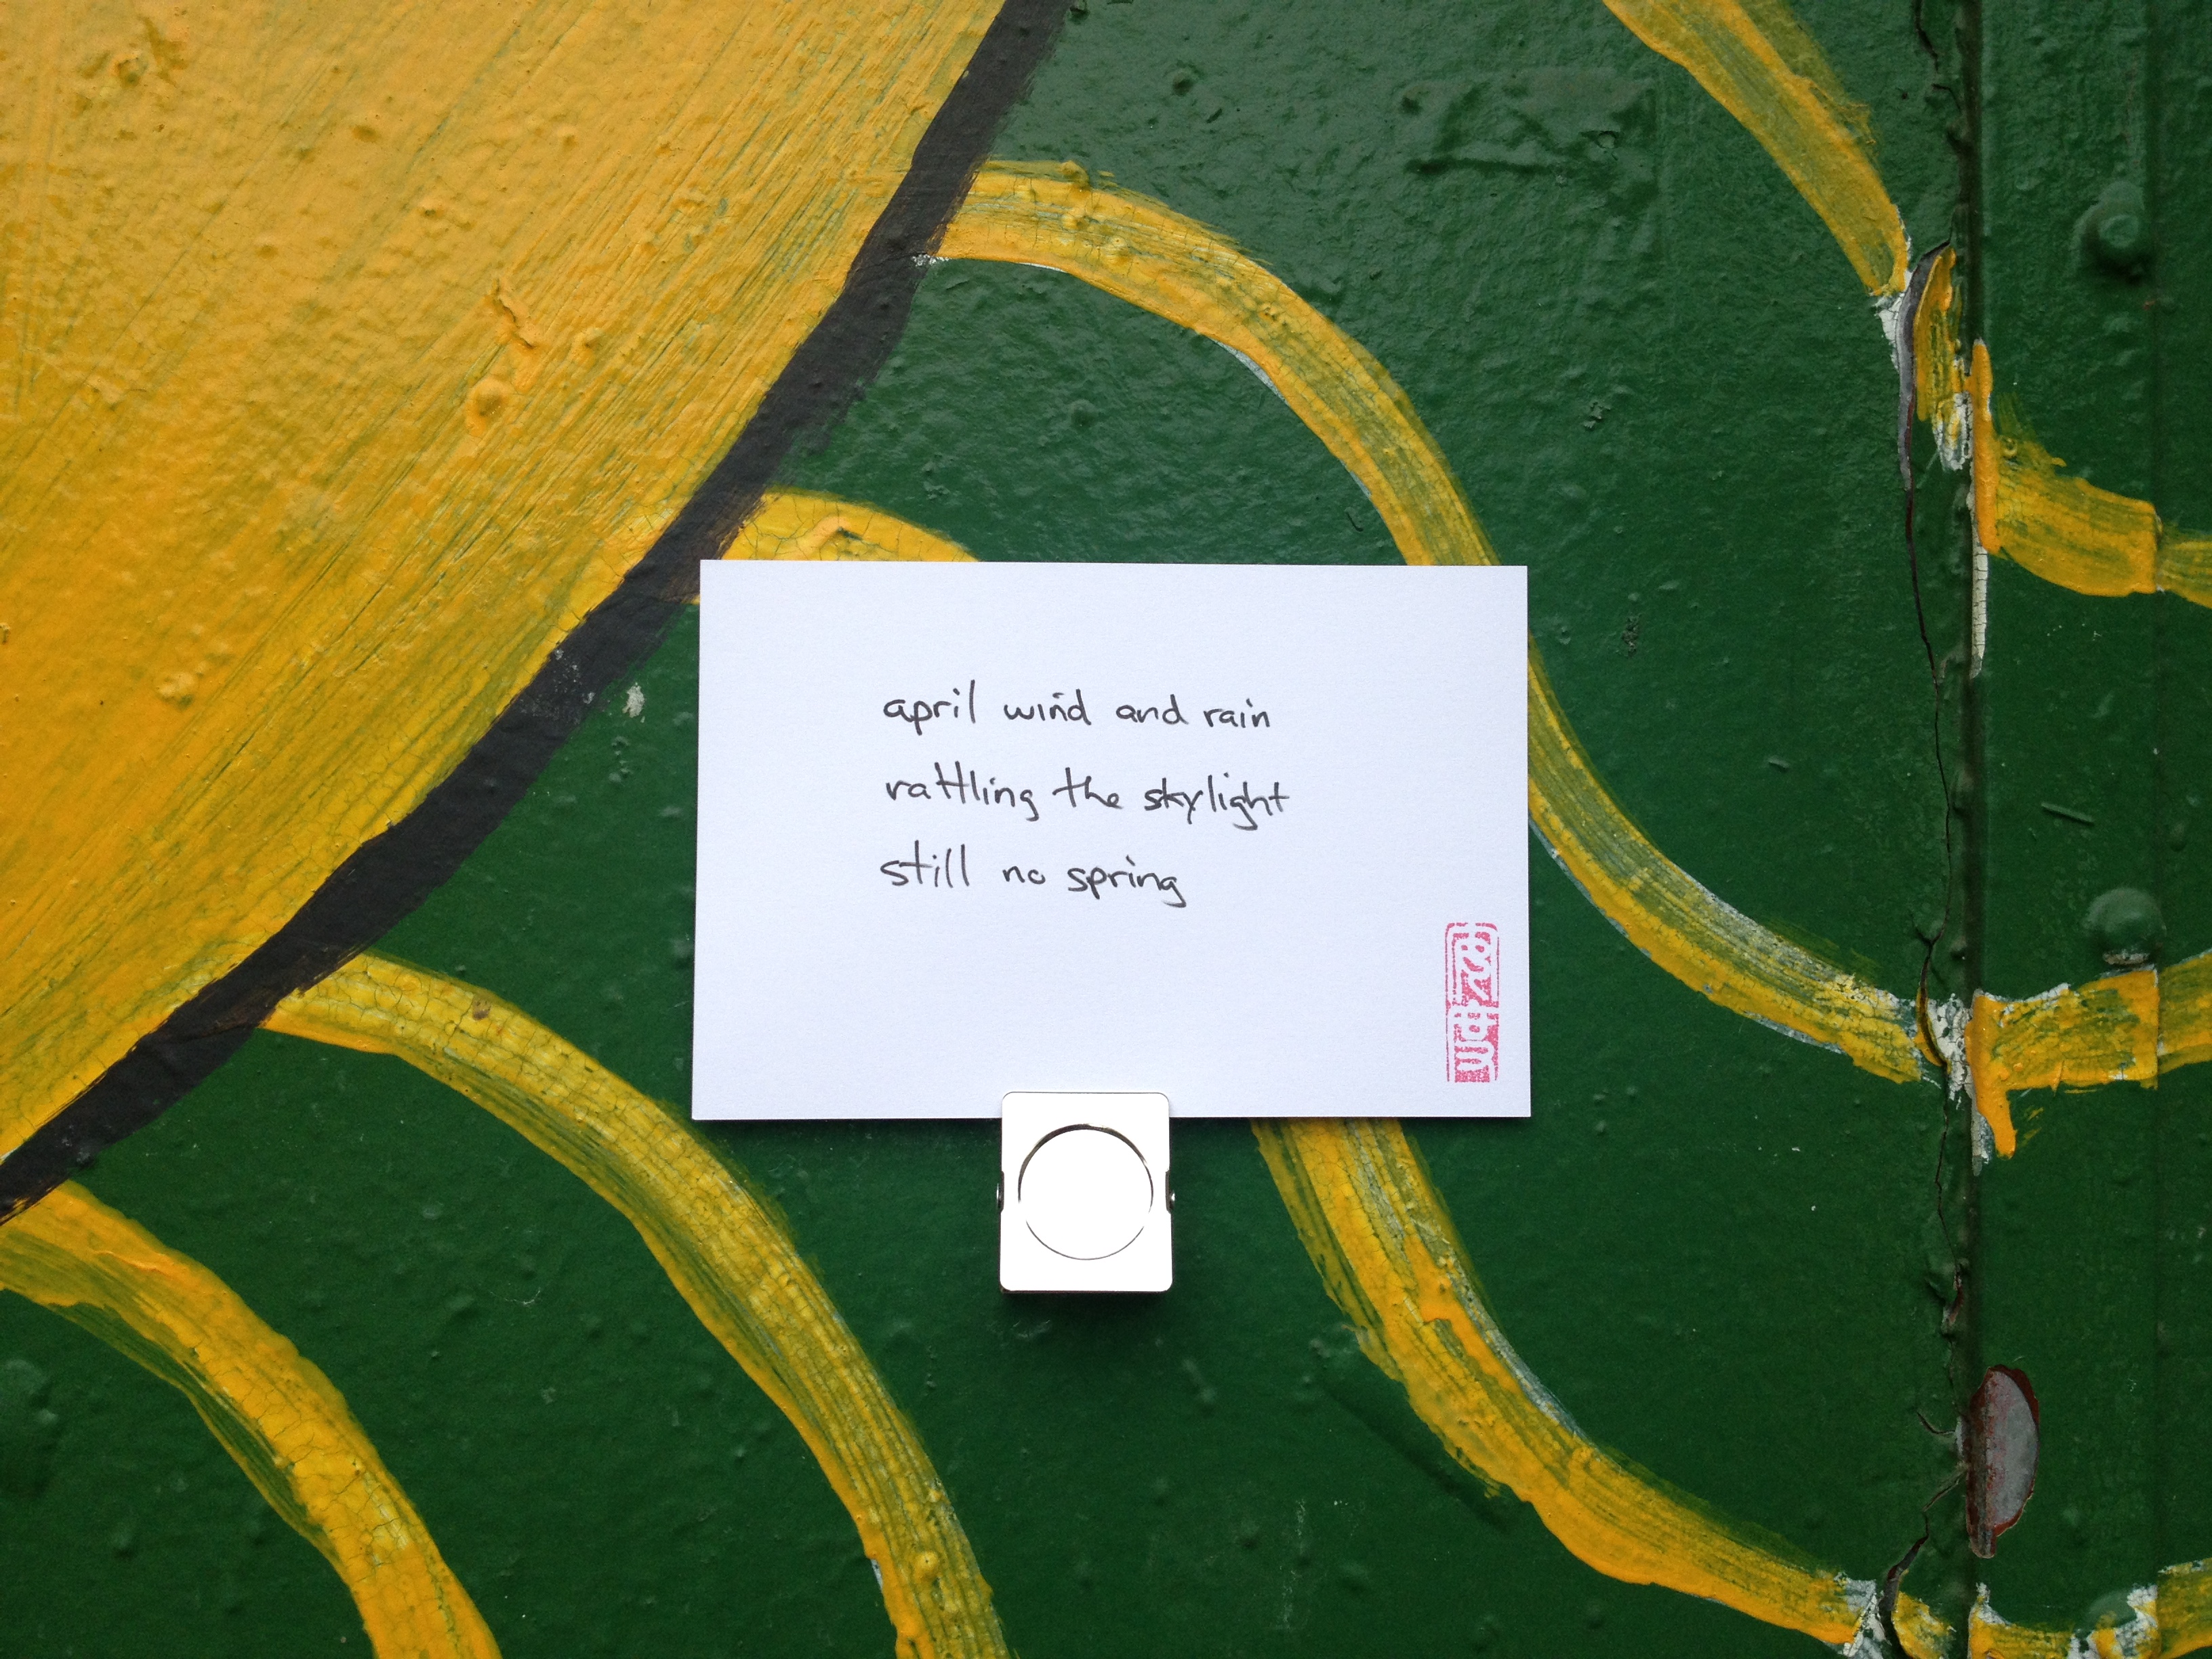 april wind and rain
rattling the skylight
still no spring